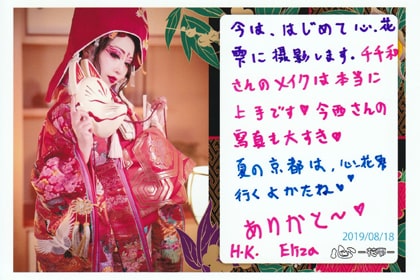 今は、はじめて心.花
雫に撮影します. 千千和
さんのメイクは本当に
上手です♥ 今西さんの
写真も大すき♥
夏の京都は、心.花雫
行くよかたね♥
ありがと〜♥
H.K. Eliza
2019/08/18
心 —花雫—